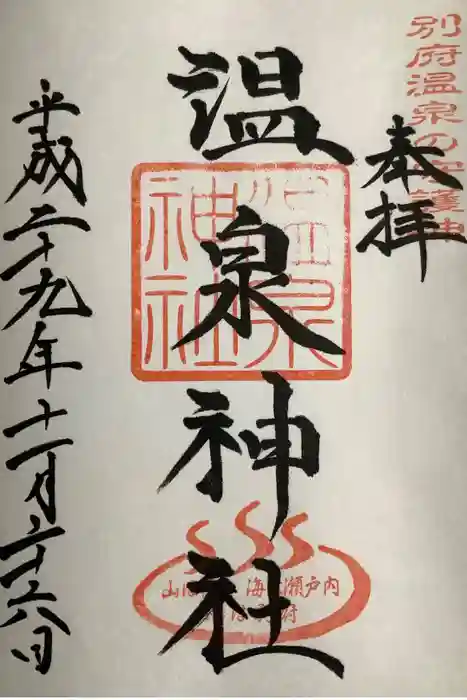 別府温泉の守護神
奉拝
温泉神社
温泉神社
山は 海 瀬戸内
は 府
平成二十九年十一月二十六日